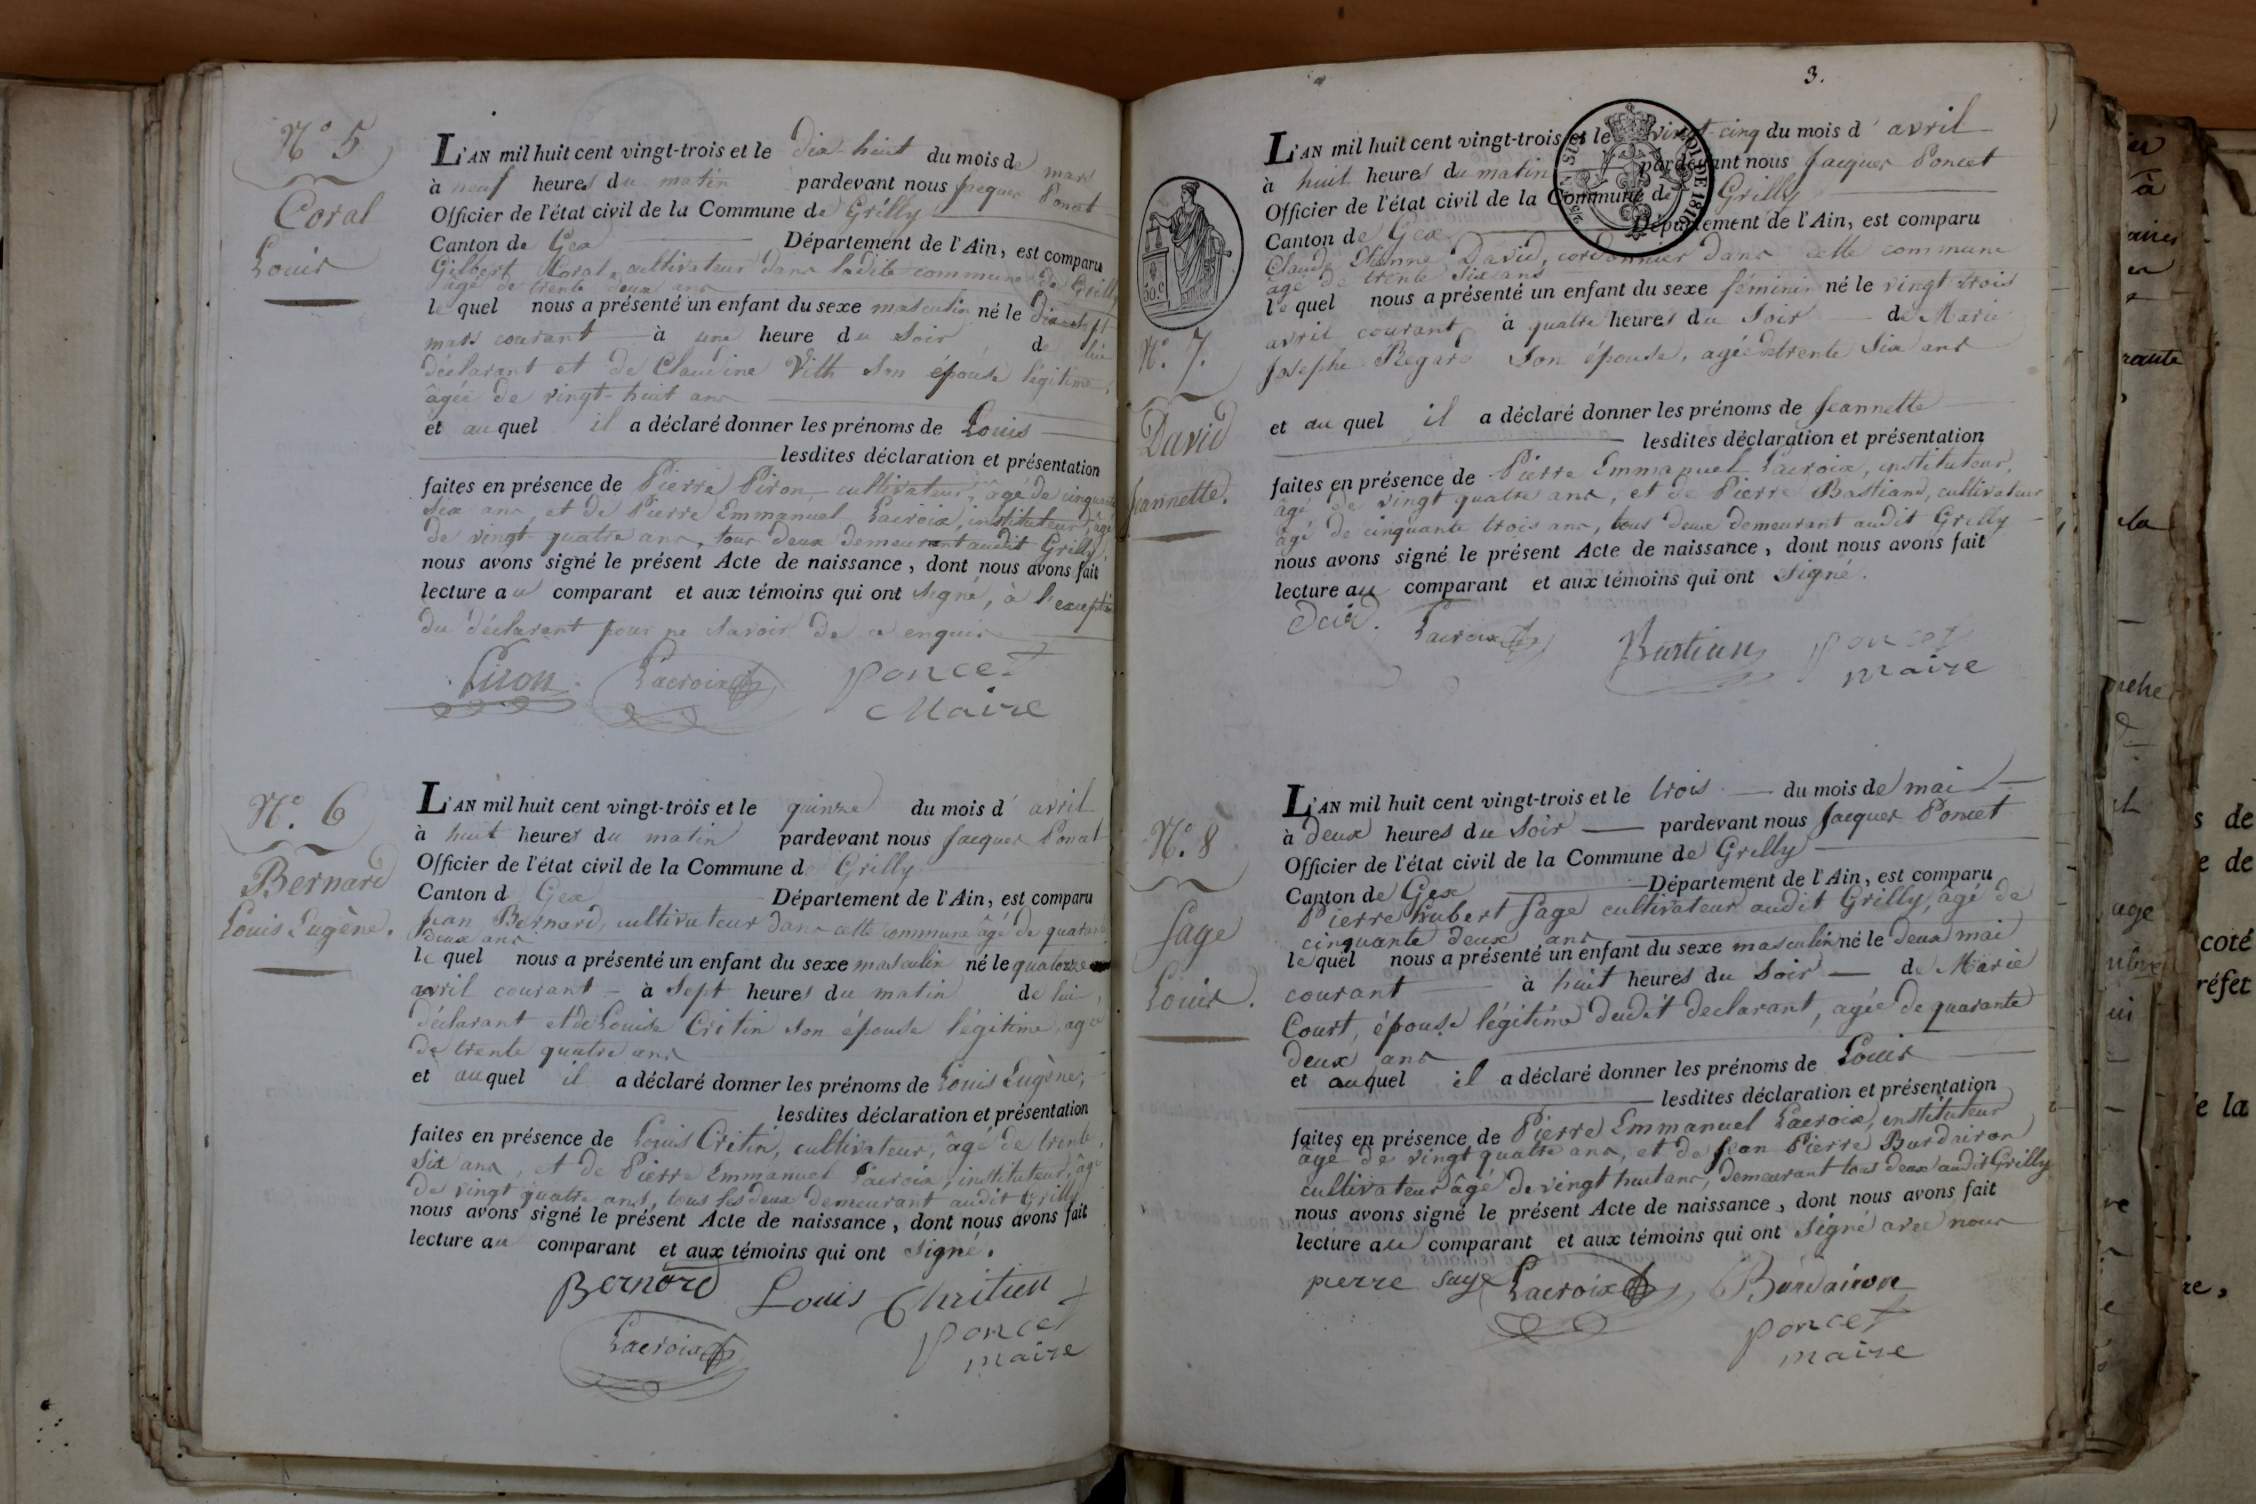 N.° 5
Coral
Louis
L'AN mil huit cent vingt-trois et le dix-huit du mois de mars
à neuf heures du matin pardevant nous Jacques Poncet
Officier de l'état civil de la Commune de Grilly
Canton de Gex Département de l'Ain, est comparu
Gilbert Coral, cultivateur dans ladite commune de Grilly
âgé de trente deux ans
le quel nous a présenté un enfant du sexe masculin né le dix sept
mars courant à une heure du soir de lui
déclarant et de Claudine Vith son épouse légitime,
âgée de vingt-huit ans
et au quel il a déclaré donner les prénoms de Louis
lesdites déclaration et présentation
faites en présence de Pierre Piron, cultivateur, âgé de cinquante
six ans, et de Pierre Emmanuel Lacroix, instituteur, âgé
de vingt-quatre ans, tous deux demeurant audit Grilly,
nous avons signé le présent Acte de naissance, dont nous avons fait
lecture au comparant et aux témoins qui ont signé, à l'exception
du déclarant pour ne savoir de ce enquis
Piron Lacroix Poncet
Maire
N.° 6
Bernard
Louis Eugène.
L'AN mil huit cent vingt-trois et le quinze du mois d' avril
à huit heures du matin pardevant nous Jacques Poncet
Officier de l'état civil de la Commune d Grilly
Canton d Gex Département de l'Ain, est comparu
Jean Bernard, cultivateur dans cette commune âgé de quarante
deux ans
le quel nous a présenté un enfant du sexe masculin né le quatorze
avril courant à sept heures du matin de lui,
déclarant et de Louise Critin son épouse légitime, agée
de trente quatre ans
et au quel il a déclaré donner les prénoms de Louis Eugène,
lesdites déclaration et présentation
faites en présence de Louis Critin, cultivateur, âgé de trente
six ans, et de Pierre Emmanuel Lacroix, instituteur, âgé
de vingt quatre ans, tous les deux demeurant audit Grilly
nous avons signé le présent Acte de naissance, dont nous avons fait
lecture au comparant et aux témoins qui ont signé.
Bernard Louis Chritien
Lacroix Poncet
maire
3.
N.° 7.
David
Jeannette.
L'AN mil huit cent vingt-trois et le vingt-cinq du mois d' avril
à huit heures du matin pardevant nous Jacques Poncet
Officier de l'état civil de la Commune de Grilly
Canton de Gex Département de l'Ain, est comparu
Claude Etienne David, cordonnier dans cette commune
agé de trente six ans
le quel nous a présenté un enfant du sexe féminin né le vingt trois
avril courant à quatre heures du soir de Marie
Josephe Regard son épouse, agée de trente six ans
et au quel il a déclaré donner les prénoms de Jeannette
lesdites déclaration et présentation
faites en présence de Pierre Emmanuel Lacroix, instituteur,
âgé de vingt quatre ans, et de Pierre Bastiand, cultivateur
âgé de cinquante trois ans, tous deux demeurant audit Grilly
nous avons signé le présent Acte de naissance, dont nous avons fait
lecture au comparant et aux témoins qui ont signé.
Lacroix Bastian Poncet
maire
N.° 8
Sage
Louis.
L'AN mil huit cent vingt-trois et le trois du mois de mai
à deux heures du soir pardevant nous Jacques Poncet
Officier de l'état civil de la Commune de Grilly
Canton de Gex Département de l'Ain, est comparu
Pierre Hubert Sage cultivateur audit Grilly, âgé de
cinquante deux ans
le quel nous a présenté un enfant du sexe masculin né le deux mai
courant à huit heures du soir de Marie
Court, épouse légitime dudit declarant, agée de quarante
deux ans
et au quel il a déclaré donner les prénoms de Louis
lesdites déclaration et présentation
faites en présence de Pierre Emmanuel Lacroix, instituteur
âgé de vingt quatre ans, et de Jean Pierre Burdairon
cultivateur âgé de vingt huit ans, demeurant tous deux audit Grilly
nous avons signé le présent Acte de naissance, dont nous avons fait
lecture au comparant et aux témoins qui ont signé avec nous
pierre sage Lacroix Burdairon
Poncet
maire